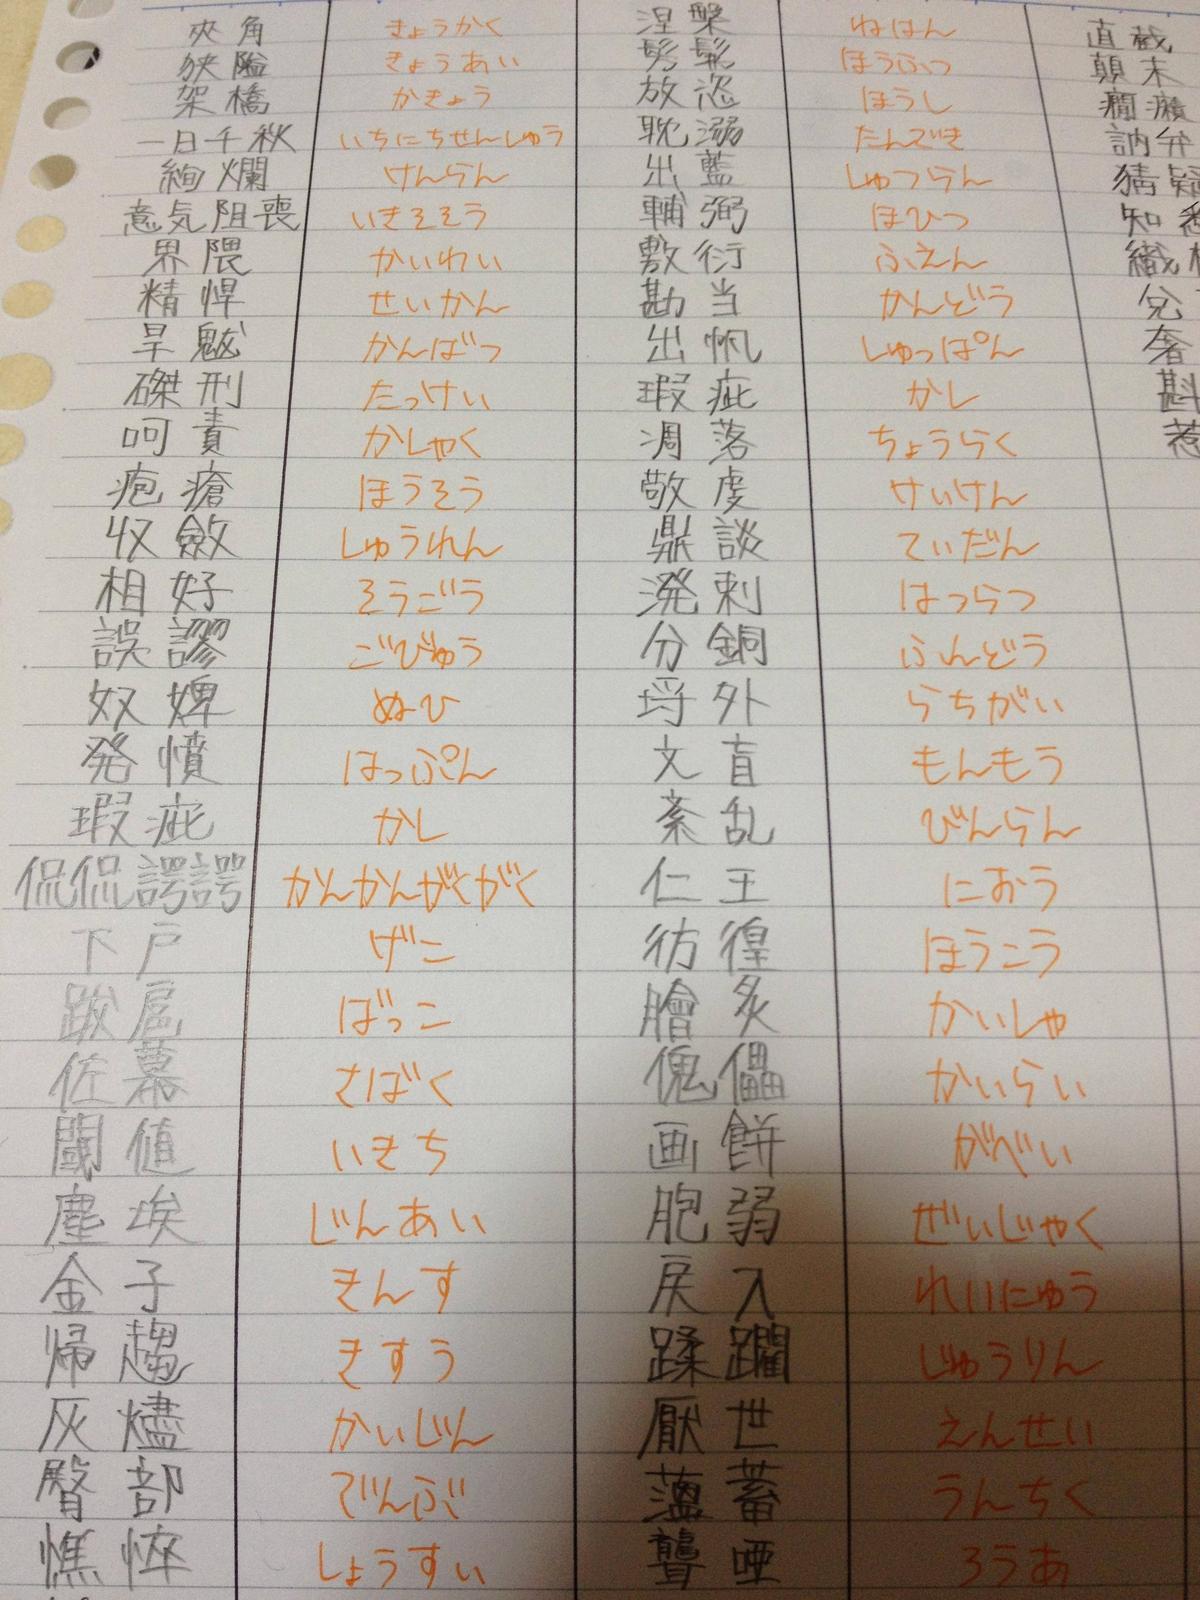 夾角 きょうかく
狭隘 きょうあい
架橋 かきょう
一日千秋 いちにちせんしゅう
絢爛 けんらん
意気阻喪 いきそそう
界隈 かいわい
精悍 せいかん
旱魃 かんばつ
磔刑 たっけい
呵責 かしゃく
疱瘡 ほうそう
収斂 しゅうれん
相好 そうごう
誤謬 ごびゅう
奴婢 ぬひ
発憤 はっぷん
瑕疵 かし
侃侃諤諤 かんかんがくがく
下戸 げこ
跋扈 ばっこ
佐幕 さばく
閾値 いきち
塵埃 じんあい
金子 きんす
帰趨 きすう
灰燼 かいじん
臀部 でんぶ
憔悴 しょうすい
涅槃 ねはん
髣髴 ほうふつ
放恣 ほうし
耽溺 たんでき
出藍 しゅつらん
輔弼 ほひつ
敷衍 ふえん
勘当 かんどう
出帆 しゅっぱん
瑕疵 かし
凋落 ちょうらく
敬虔 けいけん
鼎談 ていだん
溌剌 はつらつ
分銅 ふんどう
埒外 らちがい
文盲 もんもう
紊乱 びんらん
仁王 におう
彷徨 ほうこう
膾炙 かいしゃ
傀儡 かいらい
画餅 がべい
脆弱 ぜいじゃく
戻入 れいにゅう
蹂躙 じゅうりん
厭世 えんせい
薀蓄 うんちく
聾唖 ろうあ
直截
顛末
癇癪
訥弁
猜疑
知悉
織
兌
奢
斟
惹